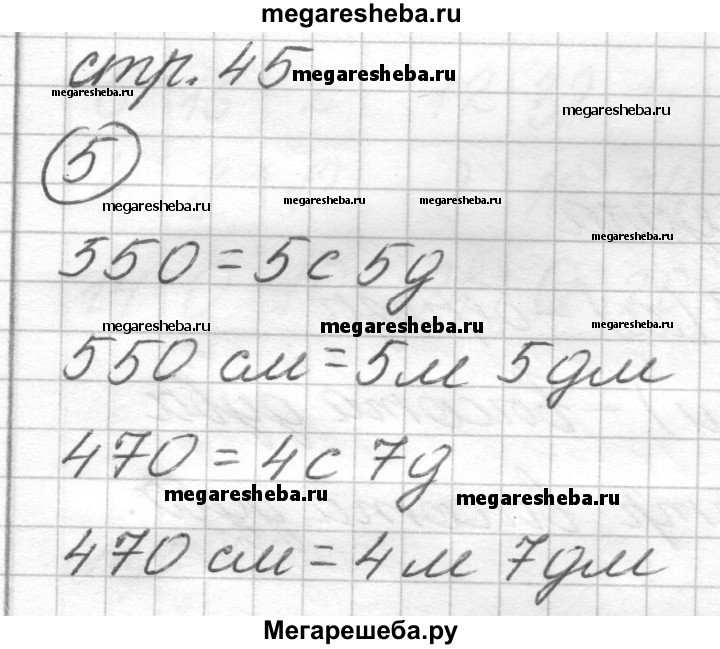 megaresheba.ru
стр. 45 megaresheba.ru
megaresheba.ru
megaresheba.ru
5
megaresheba.ru megaresheba.ru megaresheba.ru
megaresheba.ru
550 = 5с 5д
megaresheba.ru megaresheba.ru megaresheba.ru
550 см = 5м 5дм
470 = 4с 7д
megaresheba.ru megaresheba.ru
470 см = 4м 7дм
Мегарешеба.ру